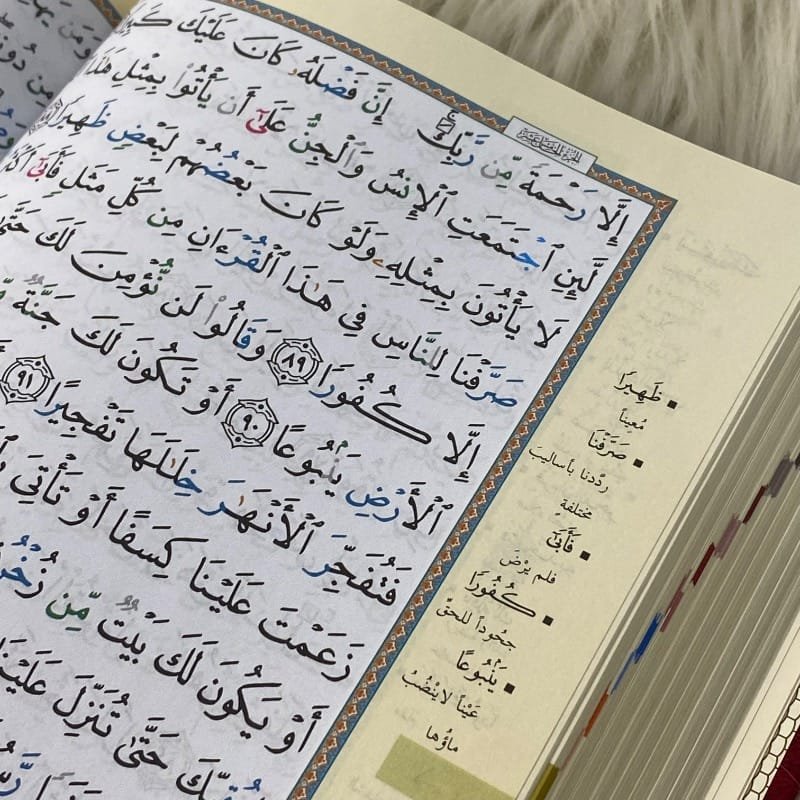 إِلَّا رَحْمَةً مِّن رَّبِّكَ إِنَّ فَضْلَهُۥ كَانَ عَلَيْكَ
لَّئِنِ ٱجْتَمَعَتِ ٱلْإِنسُ وَٱلْجِنُّ عَلَىٰٓ أَن يَأْتُوا۟ بِمِثْلِ هَٰذَا
لَا يَأْتُونَ بِمِثْلِهِۦ وَلَوْ كَانَ بَعْضُهُمْ لِبَعْضٍ ظَهِيرًا
صَرَّفْنَا لِلنَّاسِ فِى هَٰذَا ٱلْقُرْءَانِ مِن كُلِّ مَثَلٍ فَأَبَىٰٓ
إِلَّا كُفُورًا ٨٩ وَقَالُوا۟ لَن نُّؤْمِنَ لَكَ حَتَّىٰ
ٱلْأَرْضِ يَنۢبُوعًا ٩٠ أَوْ تَكُونَ لَكَ جَنَّةٌ
فَتُفَجِّرَ ٱلْأَنْهَٰرَ خِلَٰلَهَا تَفْجِيرًا ٩١
زَعَمْتَ عَلَيْنَا كِسَفًا أَوْ تَأْتِىَ
أَوْ يَكُونَ لَكَ بَيْتٌ مِّن
حَتَّىٰ تُنَزِّلَ عَلَيْنَا
ظَهِيرًا
مُعِيناً
صَرَّفْنَا
ردّدنا بأساليبَ
مختلفةٍ
فَأَبَىٰٓ
فلم يرْضَ
كُفُورًا
جحوداً للحقّ
يَنۢبُوعًا
عَيْناً لا ينْضُبُ
ماؤها